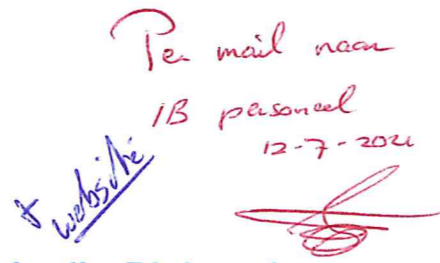 Per mail naar
IB personeel
12-7-2021
+ website